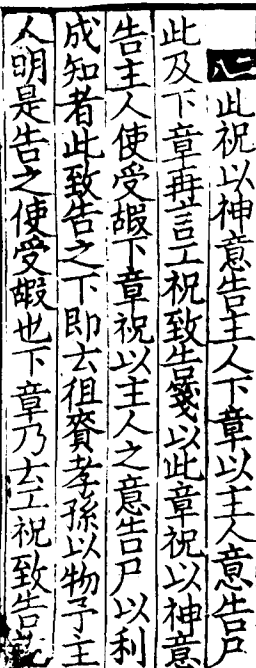 二八此祝以神意告主人下章以主人意告尸
此及下章再言工祝致告箋以此章祝以神意
告主人使受嘏下章祝以主人之意告尸以利
成知者此致告之下即云徂賚孝孫以物予主
人明是告之使受嘏也下章乃云工祝致告